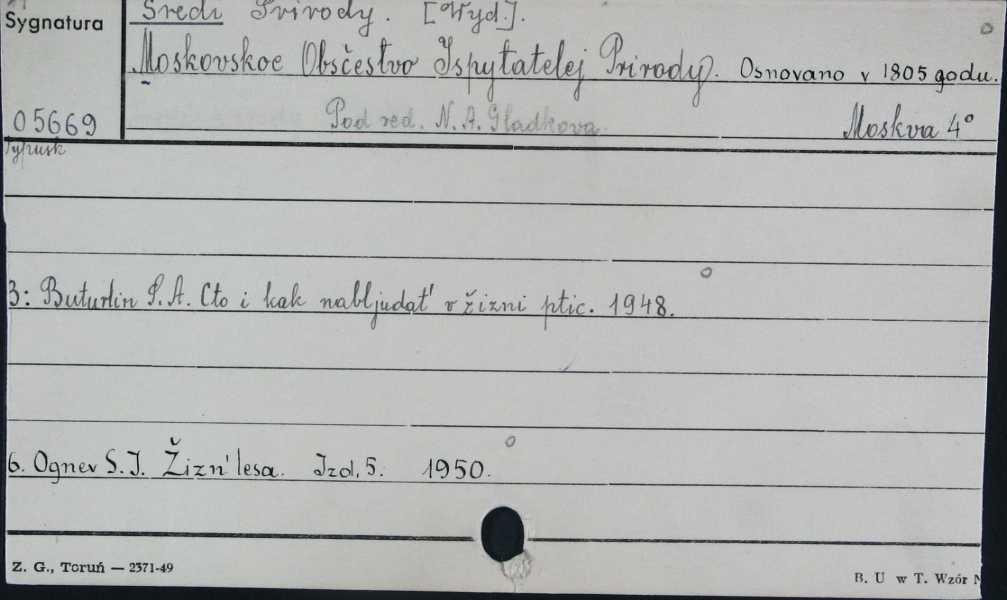 Sygnatura
Sredi Prirody. [Wyd.].
Moskovskoe Obščestvo Ispytatelej Prirody. Osnovano v 1805 godu.
05669
Pod red. N. A. Gladkova. Moskva 4°
Vypusk
3: Buturlin S. A. Cto i kak nabljudat' v žizni ptic. 1948.
6. Ognev S. I. Žizn' lesa. Izd. 5. 1950.
Z. G., Toruń — 2371-49
B. U w T. Wzór